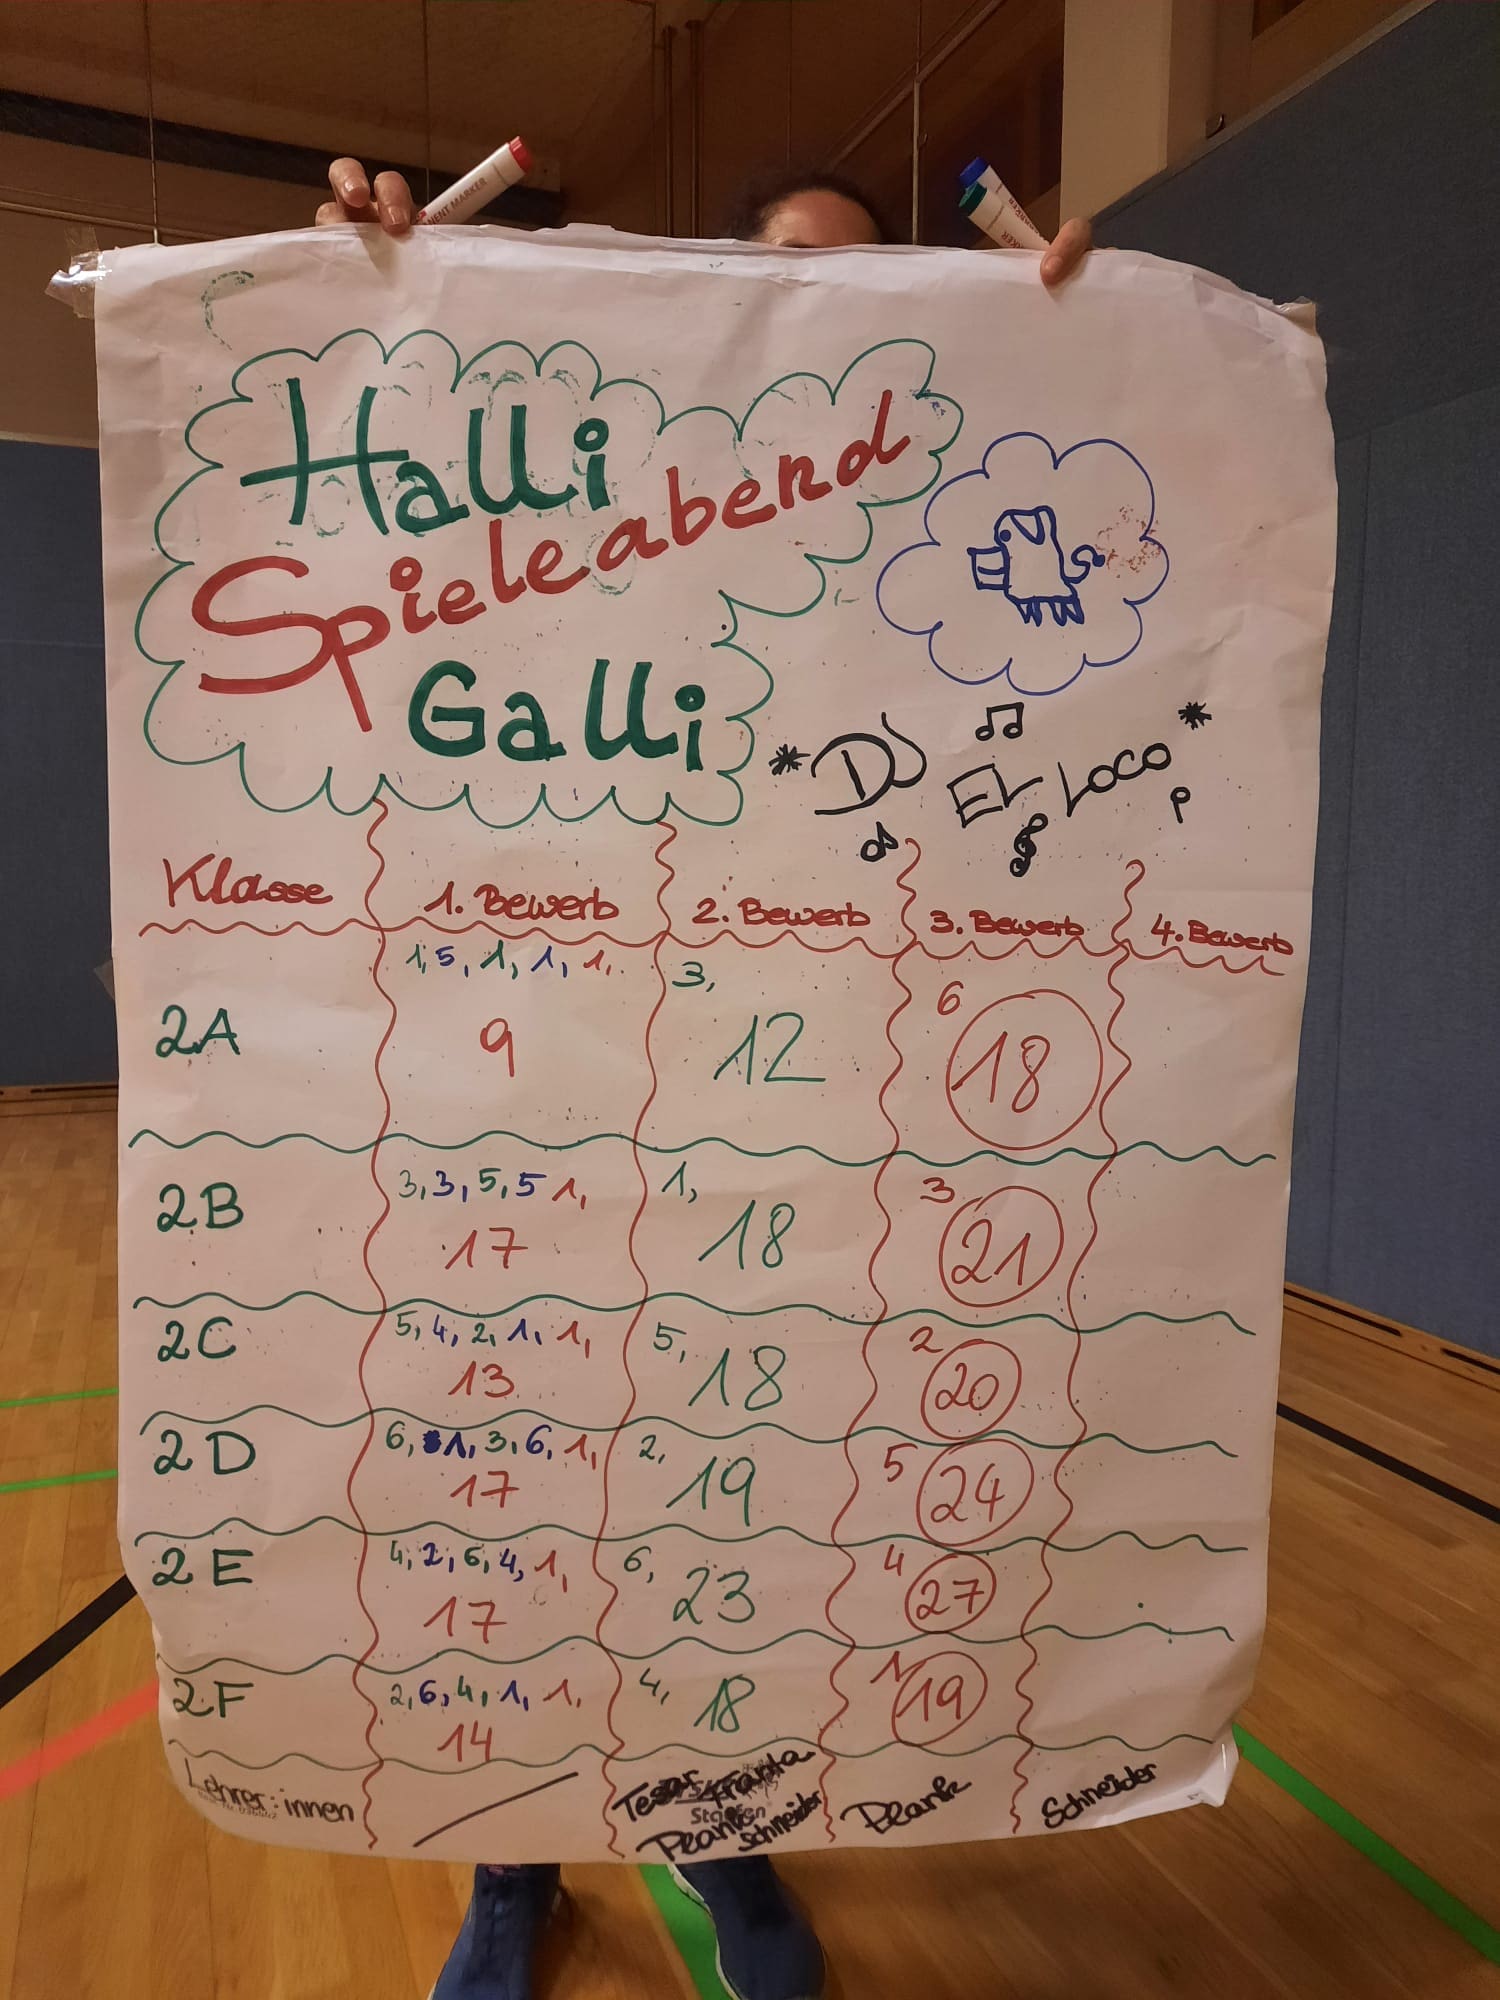 NENT MARKER
Halli
Spieleabend
Galli
* DJ EL LOCO *
Klasse 1. Bewerb 2. Bewerb 3. Bewerb 4. Bewerb
1, 5, 1, 1, 1, 3, 6
2A 9 12 18
3, 3, 5, 5 1, 1, 3
2B 17 18 21
5, 4, 2, 1, 1, 5, 2
2C 13 18 20
6, 1, 3, 6, 1, 2, 5
2D 17 19 24
4, 2, 6, 4, 1, 6, 4
2E 17 23 27
2, 6, 4, 1, 1, 4, 1
2F 14 18 19
Lehrer:innen Tesar Franta Schneider
Schneider